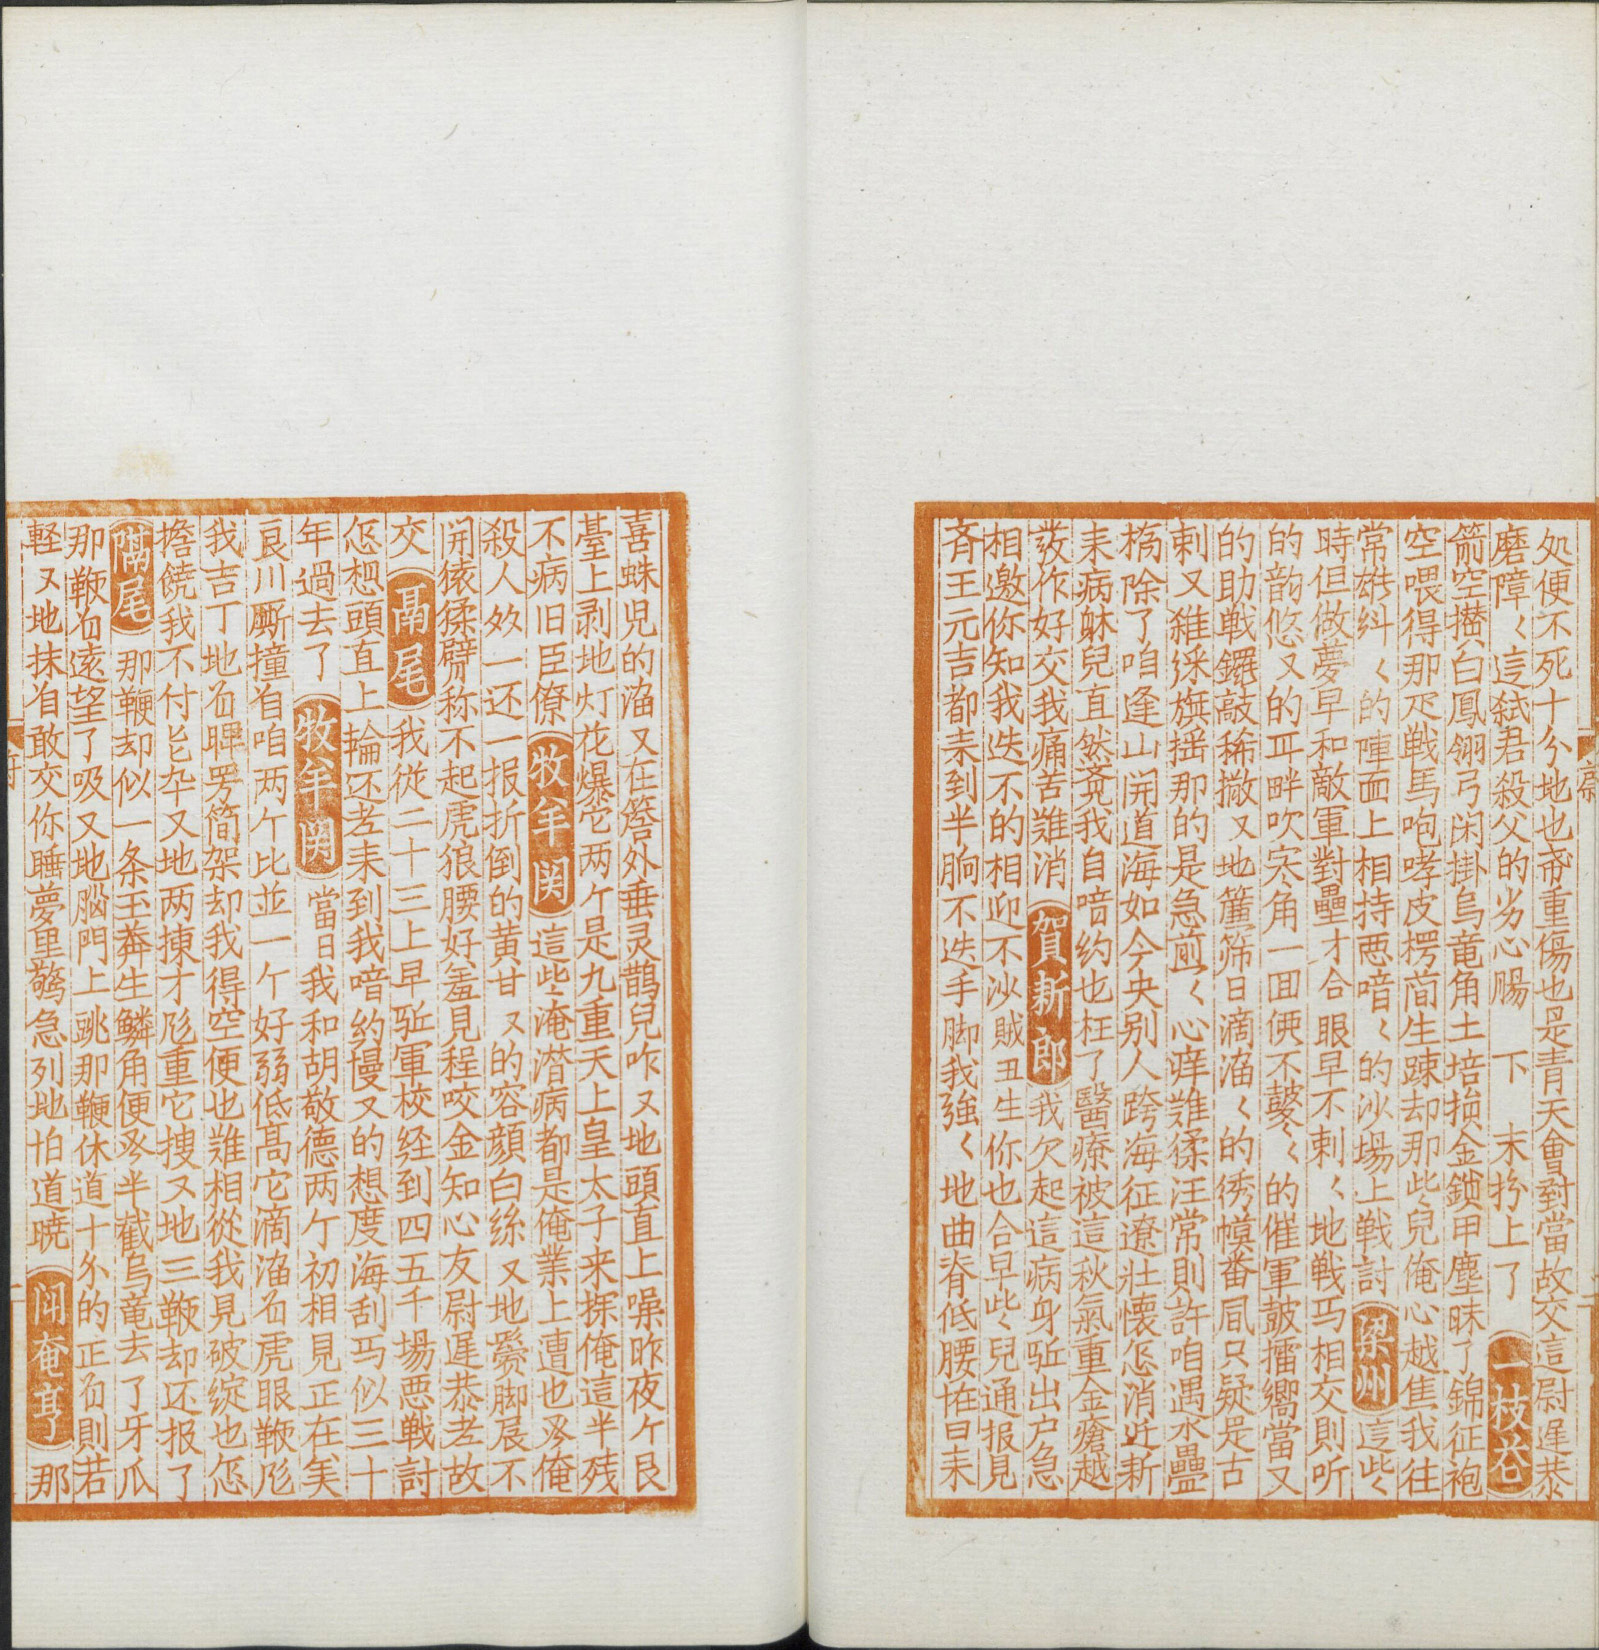 处便不死十分地也帝重傷也是青天會對當故交這尉迟恭
磨障〱這弑君殺父的劣心腸　下　末扮上了　一枝花
箭空攢白鳳翎弓闲掛烏竜角土培損金鎖甲塵昧了錦征袍
空喂得那疋戦馬咆哮皮楞简生踈却那些兒俺心越焦我往
常雄糾〱的陣面上相持悪喑〱的沙場上戦討　梁州　這些〱
時但做夢早和敵軍對壘才合眼早不剌〱地戦马相交則听
的韵悠又的耳畔吹寒角一回価不鼕〱的催軍皷擂嚮當又
的助戦鑼敲稀撒又地簾筛日滴溜〱的绣幙番凮只疑是古
剌又雜綵旗揺那的是急煎〱心痒難揉汪常則許咱遇水疊
橋除了咱逢山開道海如今央别人跨海征遼壯懷怎消近新
耒病躰兒直然㐫我自喑约也枉了醫療被這秋氣重金瘡越
發作好交我痛苦難消　賀新郎　我欠起這病身𨈆出户急
相邀你知我迭不的相迎不沙賊丑生你也合早些兒通报見
斉王元吉都耒到半晌不迭手脚我強〱地曲脊低腰恠日耒
喜蛛児的溜又在簷外垂灵鵲兒咋又地頭直上噪昨夜个艮
臺上剥地灯花爆它两个是九重天上皇太子来探俺這半残
不病旧臣僚　牧羊関　這些淹潜病都是俺業上遭也是俺
殺人㸚一还一报折倒的黄甘又的容顔白絲又地鬓脚展不
開猿揉臂称不起虎狼腰好羞見程咬金知心友尉迟恭老故
交　鬲尾　我從二十三上早𨈆軍校经到四五千場悪戦討
怎想頭直上輪还老耒到我喑約慢又的想度海刮马似三十
年過去了　牧羊関　當日我和胡敬德两个初相見正在美
良川厮撞着咱两个比並一个好弱低高它滴溜着虎眼鞭彫
我吉丁地着暉罗简架却我得空便也難相從我見破綻也怎
擔饒我不付能卒又地两揀才彫重它搜又地三鞭却还报了
隔尾　那鞭却似一条玉蟒生鱗角便是半截烏竜去了牙爪
那鞭着遠望了吸又地腦門上跳那鞭休道十分的正着則若
軽又地抹着敢交你睡夢里驚急列地怕道暁　鬥奄享　那